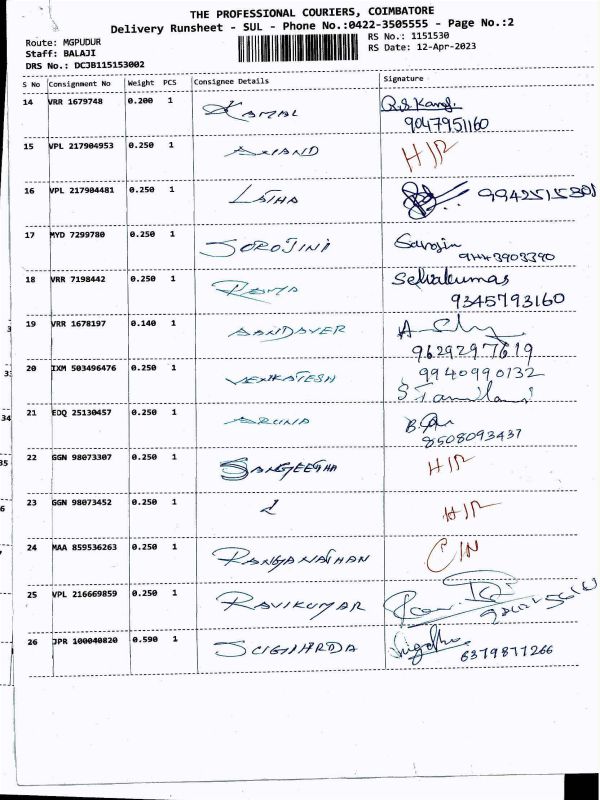 THE PROFESSIONAL COURIERS, COIMBATORE
Delivery Runsheet - SUL - Phone No.:0422-3505555 - Page No.:2
Route: MGPUDUR
Staff: BALAJI
DRS No.: DCJB115153002
RS No.: 1151530
RS Date: 12-Apr-2023
S No Consignment No Weight PCS Consignee Details Signature
14 VRR 1679748 0.200 1 KAMAL
9047951160
15 VPL 217904953 0.250 1 ANAND
16 VPL 217904481 0.250 1 LATHA
17 MYD 7299780 0.250 1 SOROJINI Sarojin
9443903390
18 VRR 7198442 0.250 1 RAMA Selvakumar
9345793160
19 VRR 1678197 0.140 1
9629297619
20 IXM 503496476 0.250 1 VENKATESH 9940990132
21 EDQ 25130457 0.250 1 ARUNA
8508093437
22 GGN 98073307 0.250 1 SANGEETHA
23 GGN 98073452 0.250 1
24 MAA 859536263 0.250 1 RANGANATHAN
25 VPL 216669859 0.250 1 RAVIKUMAR
26 JPR 100040820 0.590 1
6379877266